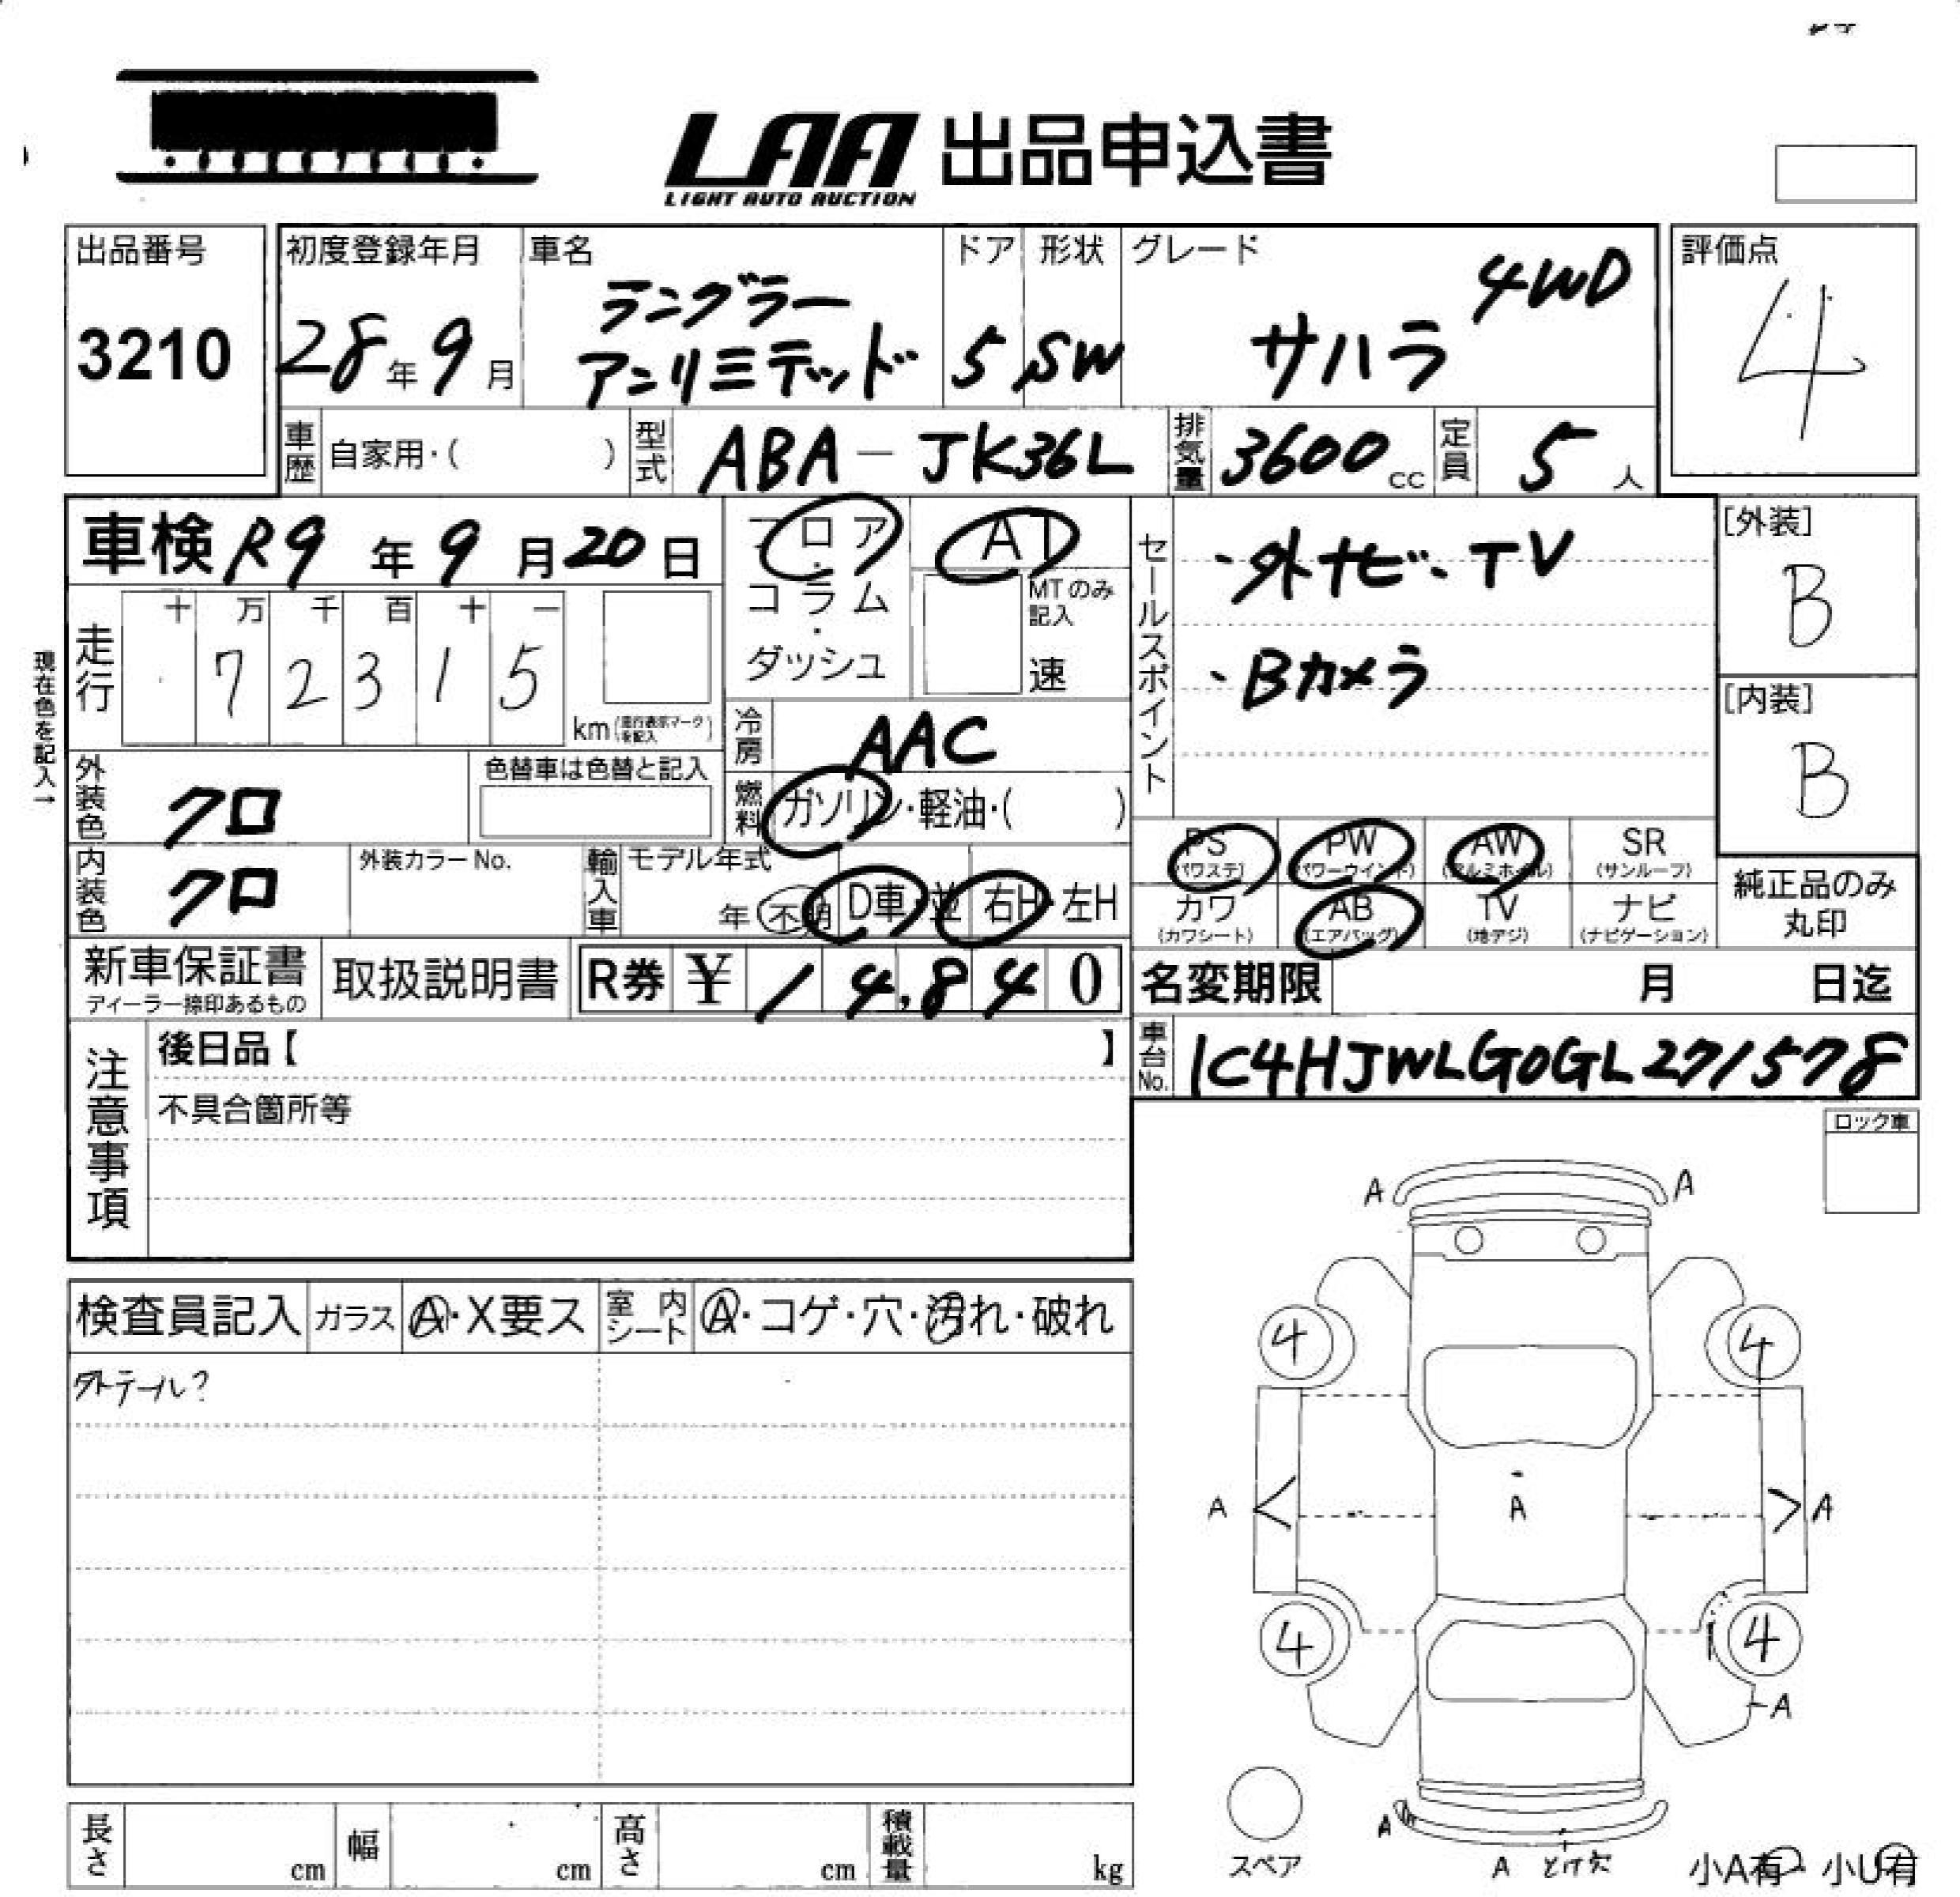 LAA 出品申込書
LIGHT AUTO AUCTION
出品番号
3210
初度登録年月
28年9月
車名
ラングラー
アンリミテッド
ドア
5
形状
SW
グレード
4WD
サハラ
評価点
4
車歴 自家用・( )
型式 ABA-JK36L
排気量 3600cc
定員 5人
車検 R9年9月20日
フロア・コラム・ダッシュ
AT
MTのみ記入
速
セールスポイント
・外ナビ・TV
・Bカメラ
[外装]
B
[内装]
B
現在色を記入→
走行
十 万 千 百 十 一
7 2 3 1 5
km(走行表示マークを記入)
冷房 AAC
燃料 ガソリン・軽油・( )
外装色 クロ
色替車は色替と記入
内装色 クロ
外装カラーNo.
輸入車
モデル年式
年 不明
D車・並
右H・左H
PS (パワステ)
PW (パワーウインド)
AW (アルミホイル)
SR (サンルーフ)
カワ (カワシート)
AB (エアバッグ)
TV (地デジ)
ナビ (ナビゲーション)
純正品のみ
丸印
新車保証書
ディーラー捺印あるもの
取扱説明書
R券 ¥14,840
名変期限 月 日迄
車台No. 1C4HJWLG0GL271578
注意事項
後日品【 】
不具合箇所等
ロック車
検査員記入
ガラス A・X要ス
室内シート A・コゲ・穴・汚れ・破れ
外テール?
A A
4 4
A < A > A
4 4
A
A
スペア
A とけ欠
小A有・小U有
長さ cm
幅 cm
高さ cm
積載量 kg